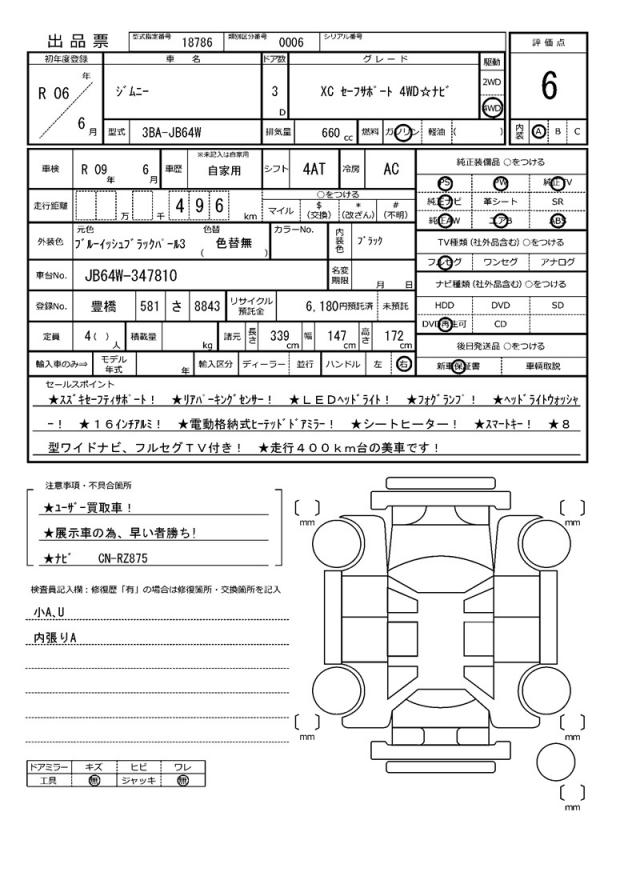 出品票 型式指定番号 18786 類別区分番号 0006 シリアル番号
評価点
6
内装 A B C
初年度登録 車名 ドア数 グレード 駆動
R 06 年 6 月 ジムニー 3 D XC セーフサポート 4WD☆ナビ 2WD 4WD
型式 3BA-JB64W 排気量 660 cc 燃料 ガソリン 軽油 ( )
車検 R 09 年 6 月 車歴 ※未記入は自家用 自家用 シフト 4AT 冷房 AC
走行距離 万 千 4 9 6 km ○をつける マイル $ (交換) * (改ざん) # (不明)
外装色 元色 ブルーイッシュブラックパール3 色替 ( 色替無 ) カラーNo. 内装色 ブラック
車台No. JB64W-347810 名変期限 月 日
登録No. 豊橋 581 さ 8843 リサイクル預託金 6,180円預託済 未預託
定員 4 ( ) 人 積載量 kg 諸元 長さ 339 cm 幅 147 cm 高さ 172 cm
輸入車のみ⇨ モデル年式 年 輸入区分 ディーラー 並行 ハンドル 左 右
純正装備品 ○をつける
PS PW 純正TV
純正ナビ 革シート SR
純正AW エアB ABS
TV種類 (社外品含む) ○をつける
フルセグ ワンセグ アナログ
ナビ種類 (社外品含む) ○をつける
HDD DVD SD
DVD再生可 CD
後日発送品 ○をつける
新車保証書 車輌取説
セールスポイント
★スズキセーフティサポート! ★リアパーキングセンサー! ★LEDヘッドライト! ★フォグランプ! ★ヘッドライトウォッシャ
ー! ★16インチアルミ! ★電動格納式ヒーテッドドアミラー! ★シートヒーター! ★スマートキー! ★8
型ワイドナビ、フルセグTV付き! ★走行400km台の美車です!
注意事項・不具合箇所
★ユーザー買取車!
★展示車の為、早い者勝ち!
★ナビ CN-RZ875
検査員記入欄:修復歴「有」の場合は修復箇所・交換箇所を記入
小A,U
内張りA
ドアミラー キズ ヒビ ワレ
工具 無 ジャッキ 無
[ ] mm
[ ] mm
[ ] mm
[ ] mm
[ ] mm